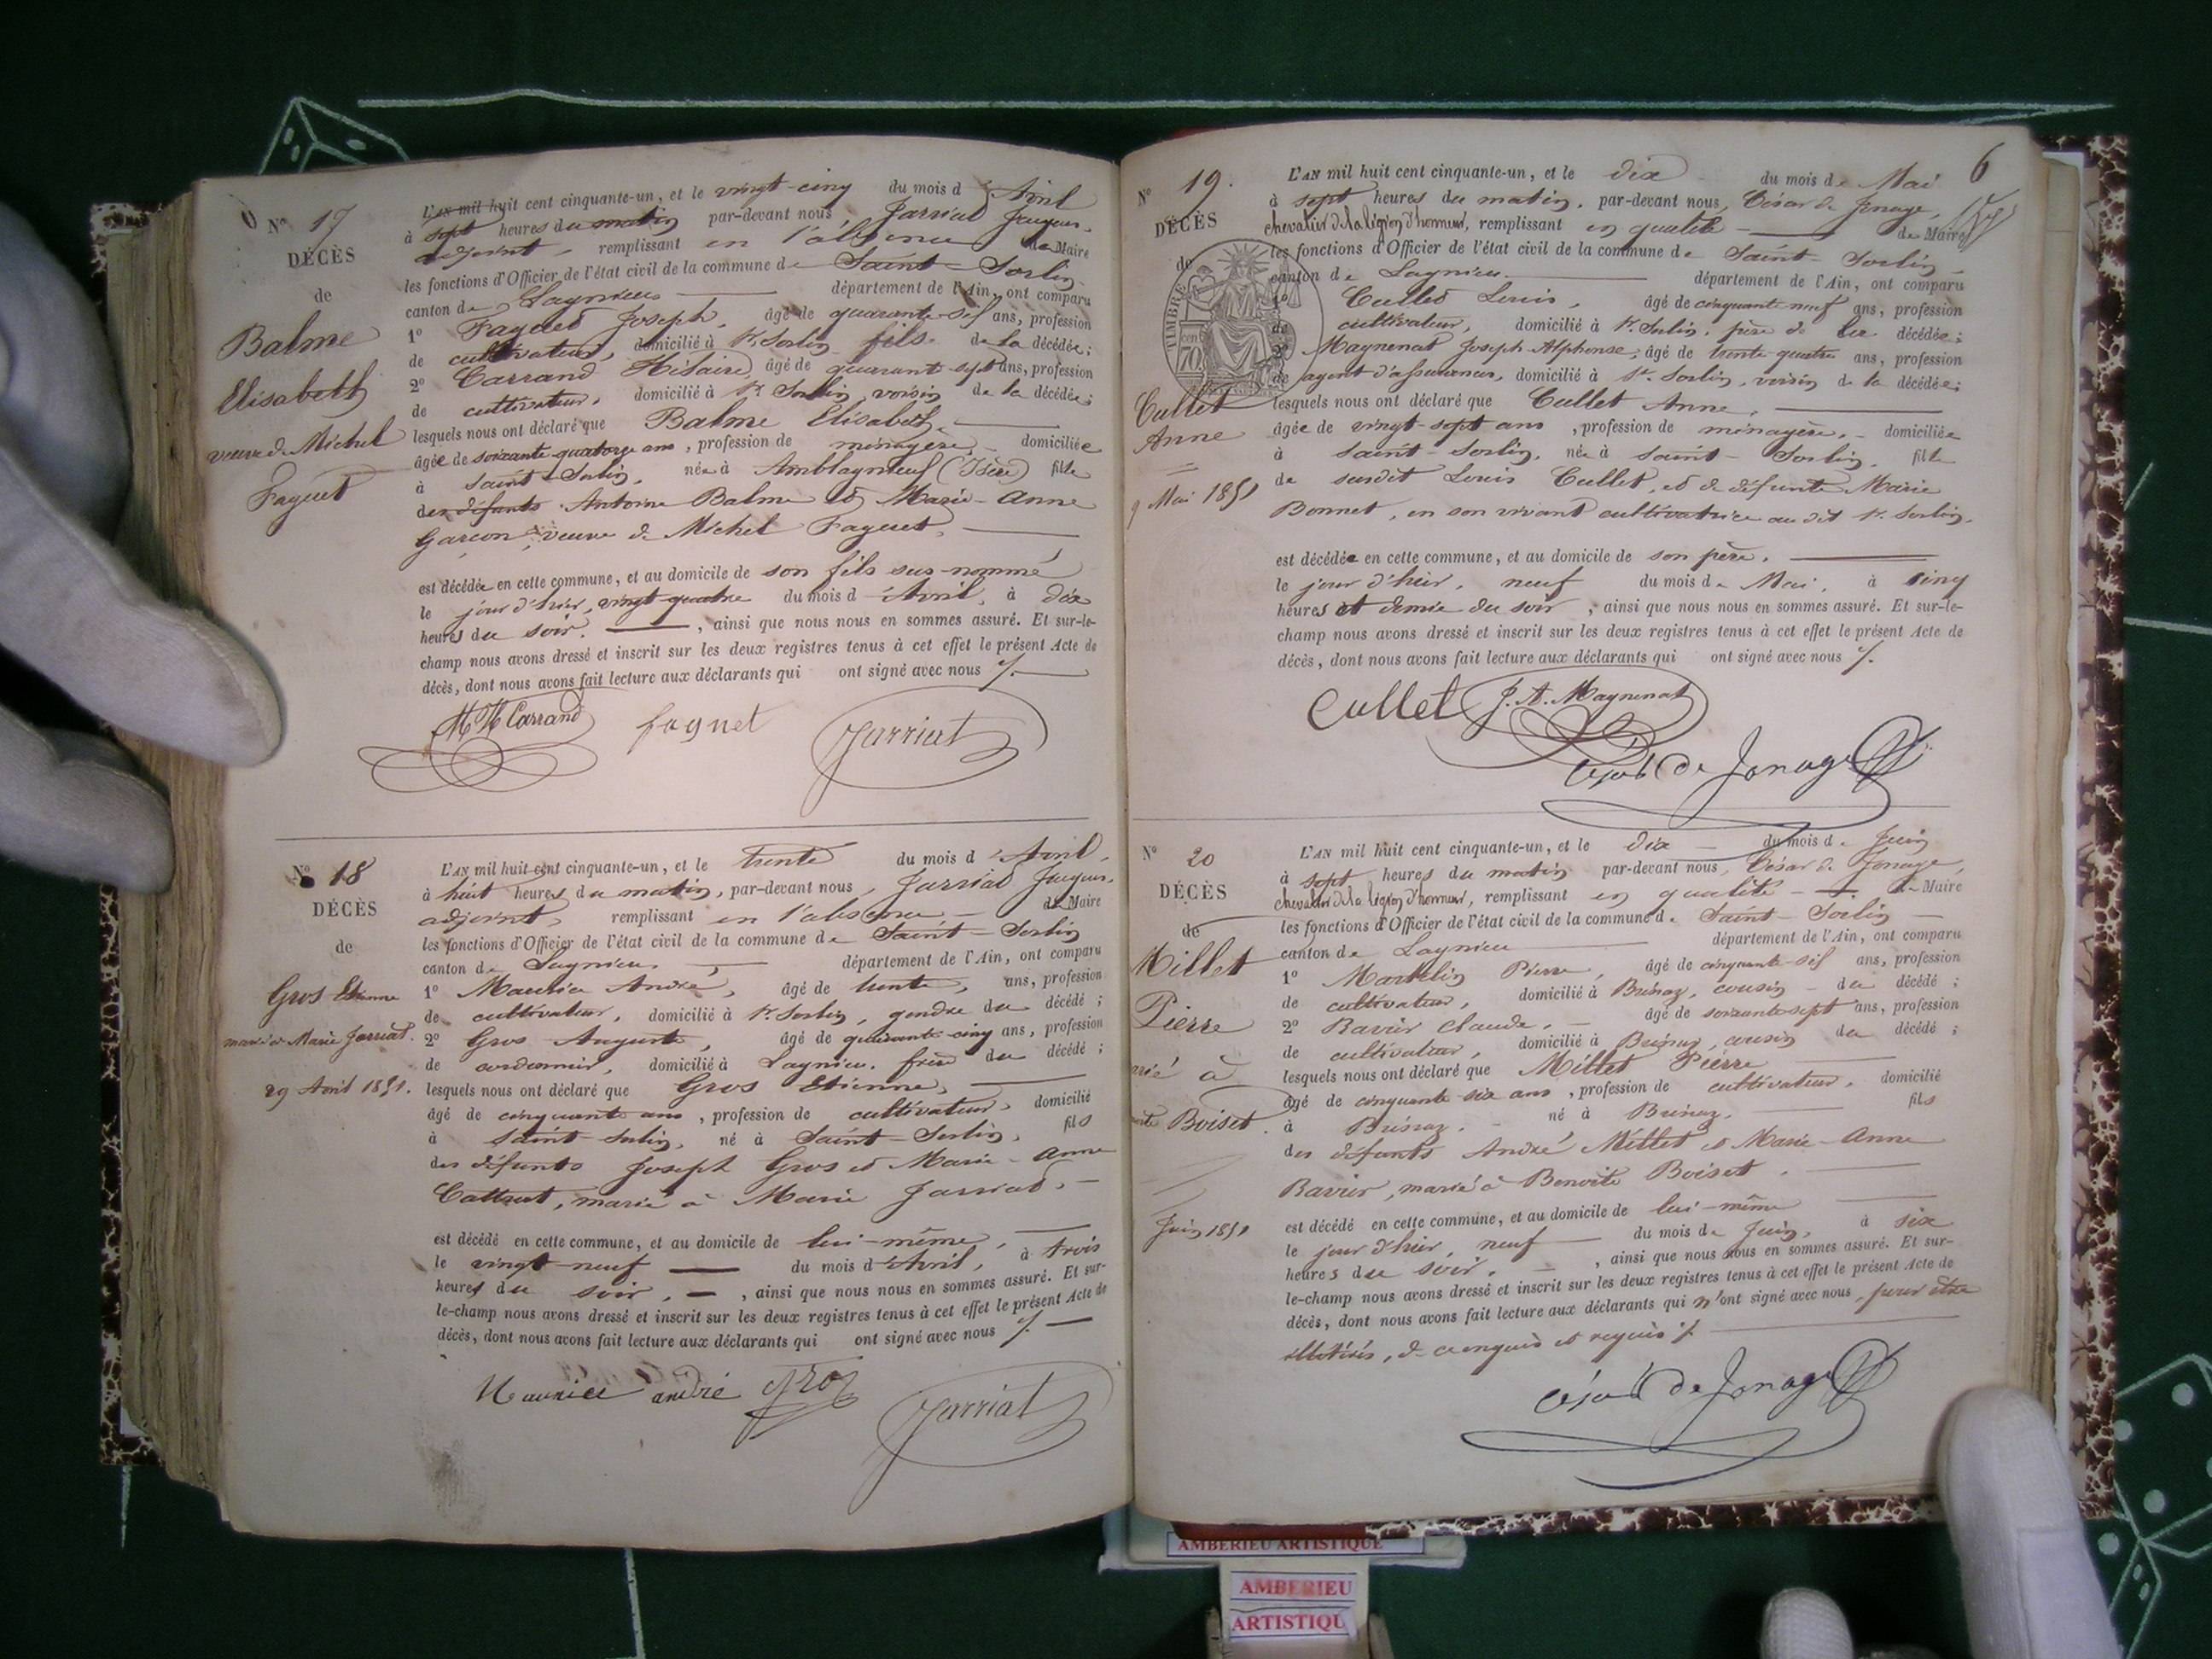 Nº 17
DÉCÈS
de
Balme
Elisabeth
veuve de Michel
Faguet
L'AN mil huit cent cinquante-un, et le vingt-cinq du mois d'Avril
à sept heures du matin par-devant nous, Jarriat Jacques,
adjoint, remplissant en l'absence de Maire
les fonctions d'Officier de l'état civil de la commune de Saint-Sorlin
canton de Lagnieu département de l'Ain, ont comparu
1º Faguet Joseph, âgé de quarante-six ans, profession
de cultivateur, domicilié à St Sorlin fils de la décédée;
2º Carrand Hilaire, âgé de quarante-sept ans, profession
de cultivateur, domicilié à St Sorlin, voisin de la décédée;
lesquels nous ont déclaré que Balme Elisabeth,
âgée de soixante-quatorze ans, profession de ménagère, domiciliée
à Saint-Sorlin, née à Amblagnieu (Isère) fille
des défunts Antoine Balme et Marie-Anne
Garcon, veuve de Michel Faguet,
est décédée en cette commune, et au domicile de son fils sus-nommé
le jour d'hier, vingt-quatre du mois d'Avril, à dix
heures du soir, ainsi que nous nous en sommes assuré. Et sur-le-
champ nous avons dressé et inscrit sur les deux registres tenus à cet effet le présent Acte de
décès, dont nous avons fait lecture aux déclarants qui ont signé avec nous
Carrand faguet Jarriat
Nº 18
DÉCÈS
de
Gros Etienne
marié à Marie Jarriat.
29 Avril 1851.
L'AN mil huit cent cinquante-un, et le trente du mois d'Avril,
à huit heures du matin, par-devant nous, Jarriat Jacques,
adjoint, remplissant en l'absence de Maire
les fonctions d'Officier de l'état civil de la commune de Saint-Sorlin
canton de Lagnieu département de l'Ain, ont comparu
1º Maurice André, âgé de trente, ans, profession
de cultivateur, domicilié à St Sorlin, gendre du décédé;
2º Gros Auguste, âgé de quarante-cinq ans, profession
de cordonnier, domicilié à Lagnieu, frère du décédé;
lesquels nous ont déclaré que Gros Etienne,
âgé de cinquante ans, profession de cultivateur, domicilié
à Saint-Sorlin, né à Saint-Sorlin, fils
des défunts Joseph Gros et Marie-Anne
marié à Marie Jarriat,
est décédé en cette commune, et au domicile de lui-même,
le vingt-neuf du mois d'Avril, à trois
heures du soir, ainsi que nous nous en sommes assuré. Et sur-
le-champ nous avons dressé et inscrit sur les deux registres tenus à cet effet le présent Acte de
décès, dont nous avons fait lecture aux déclarants qui ont signé avec nous
Maurice andré Gros Jarriat
6
Nº 19.
DÉCÈS
de
TIMBRE
70
Cullet
Anne
9 Mai 1851
L'AN mil huit cent cinquante-un, et le dix du mois de Mai
à sept heures du matin, par-devant nous, César de Jonage,
chevalier de la légion d'honneur, remplissant en qualité de Maire
les fonctions d'Officier de l'état civil de la commune de Saint-Sorlin
canton de Lagnieu département de l'Ain, ont comparu
1º Cullet Louis, âgé de cinquante-neuf ans, profession
de cultivateur, domicilié à St Sorlin, père de la décédée;
2º Magnenat Joseph-Alphonse, âgé de trente-quatre ans, profession
de agent d'assurances, domicilié à St. Sorlin, voisin de la décédée;
lesquels nous ont déclaré que Cullet Anne,
âgée de vingt-sept ans, profession de ménagère, domiciliée
à Saint-Sorlin, née à Saint-Sorlin, fille
de susdit Louis Cullet, et de défunte Marie
Bonnet, en son vivant cultivatrice au dit St. Sorlin,
est décédée en cette commune, et au domicile de son père,
le jour d'hier, neuf du mois de Mai, à cinq
heures et demie du soir, ainsi que nous nous en sommes assuré. Et sur-le-
champ nous avons dressé et inscrit sur les deux registres tenus à cet effet le présent Acte de
décès, dont nous avons fait lecture aux déclarants qui ont signé avec nous
Cullet J. A. Magnenat
César de Jonage
Nº 20
DÉCÈS
de
Millet
Pierre
rié à
Boiset.
Juin 1851
L'AN mil huit cent cinquante-un, et le dix du mois de Juin
à sept heures du matin par-devant nous, César de Jonage,
chevalier de la légion d'honneur, remplissant en qualité de Maire
les fonctions d'Officier de l'état civil de la commune de Saint-Sorlin
canton de Lagnieu département de l'Ain, ont comparu
1º Pierre, âgé de cinquante-six ans, profession
de cultivateur, domicilié à cousin du décédé;
2º Bavier Claude, âgé de soixante-sept ans, profession
de cultivateur, domicilié à cousin du décédé;
lesquels nous ont déclaré que Millet Pierre
âgé de cinquante-six ans, profession de cultivateur, domicilié
à né à fils
des défunts André Millet et Marie-Anne
Bavier, marié à Benoite Boiset.
est décédé en cette commune, et au domicile de lui-même
le jour d'hier, neuf du mois de Juin, à six
heures du soir, ainsi que nous nous en sommes assuré. Et sur-
le-champ nous avons dressé et inscrit sur les deux registres tenus à cet effet le présent Acte de
décès, dont nous avons fait lecture aux déclarants qui n'ont signé avec nous, pour être
illétérés, de ce enquis et requis
César de Jonage
AMBERIEU ARTISTIQUE
AMBERIEU
ARTISTIQU